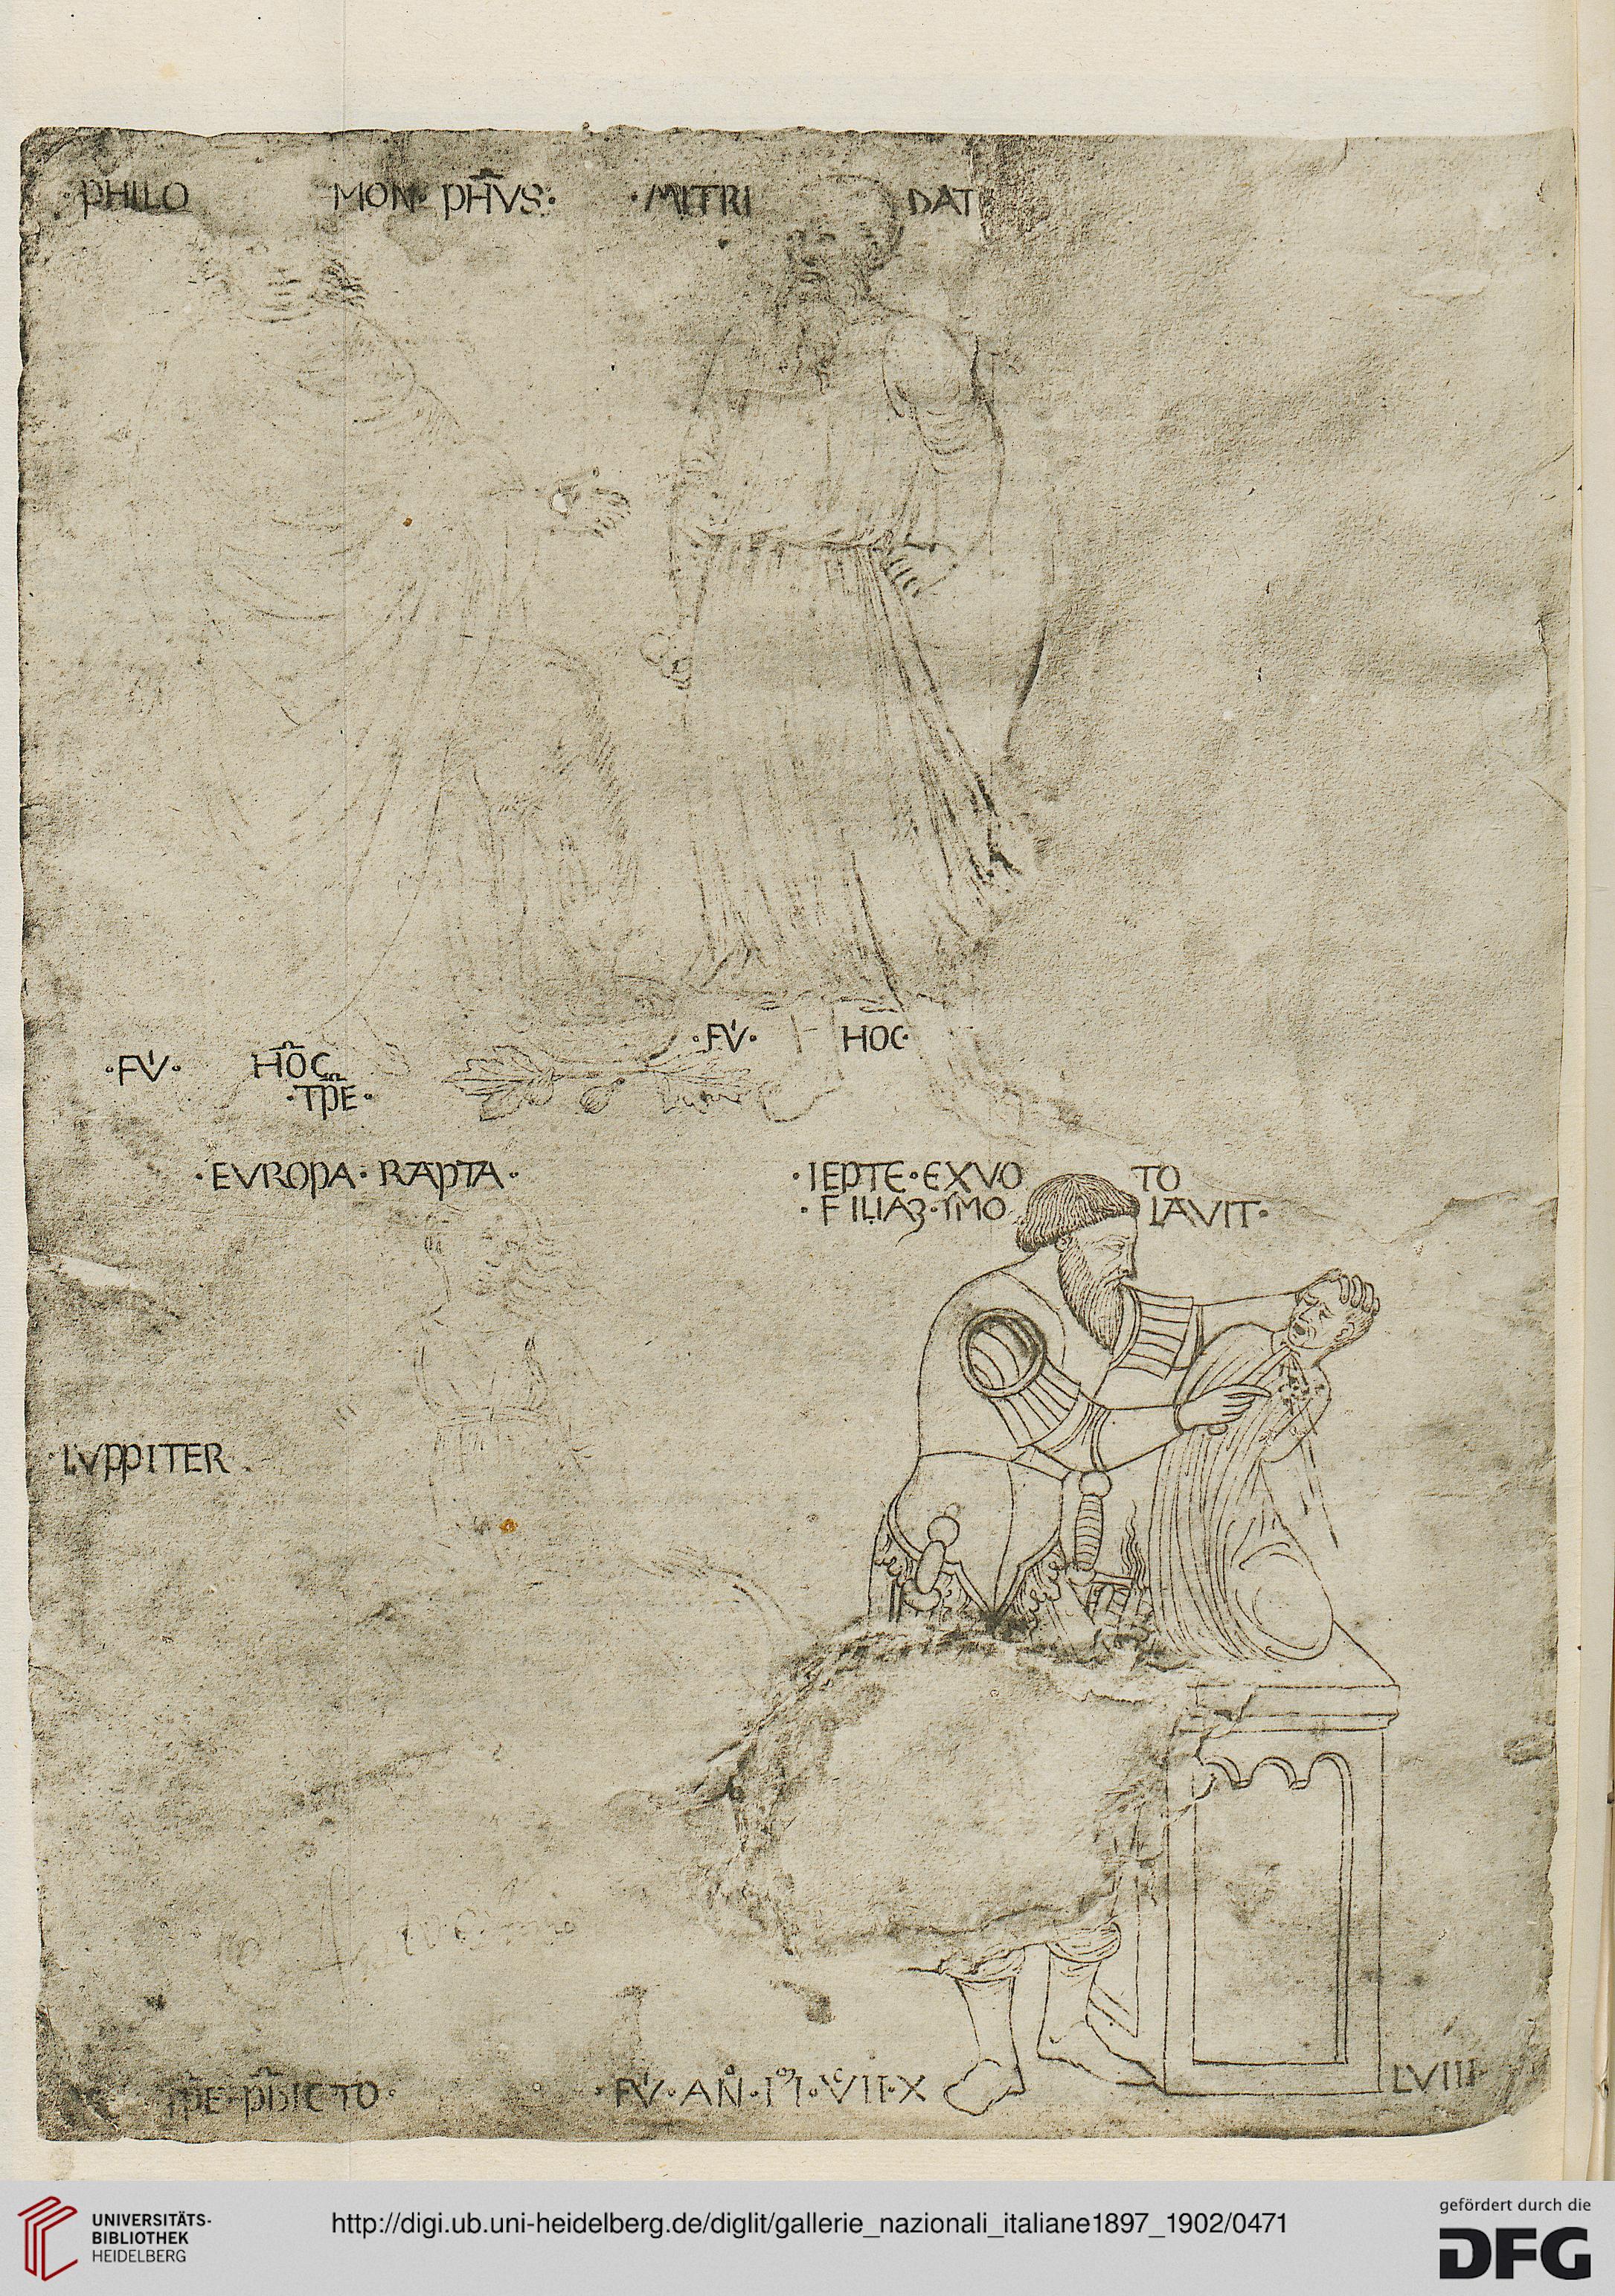 ·PHILO MON· PHVS· ·MITRI DAT
·FV· HOC·
·FV· HOC
·TPE·
·EVROPA·RAPTA·
·IEPTE·EXVO TO
·FILIAȝ·IMO LAVIT·
·IVPPITER
TPE·PDICTO·
·FV·AN·
VII·X
LVIII
UNIVERSITÄTS-
BIBLIOTHEK
HEIDELBERG
http://digi.ub.uni-heidelberg.de/diglit/gallerie_nazionali_italiane1897_1902/0471
gefördert durch die
DFG